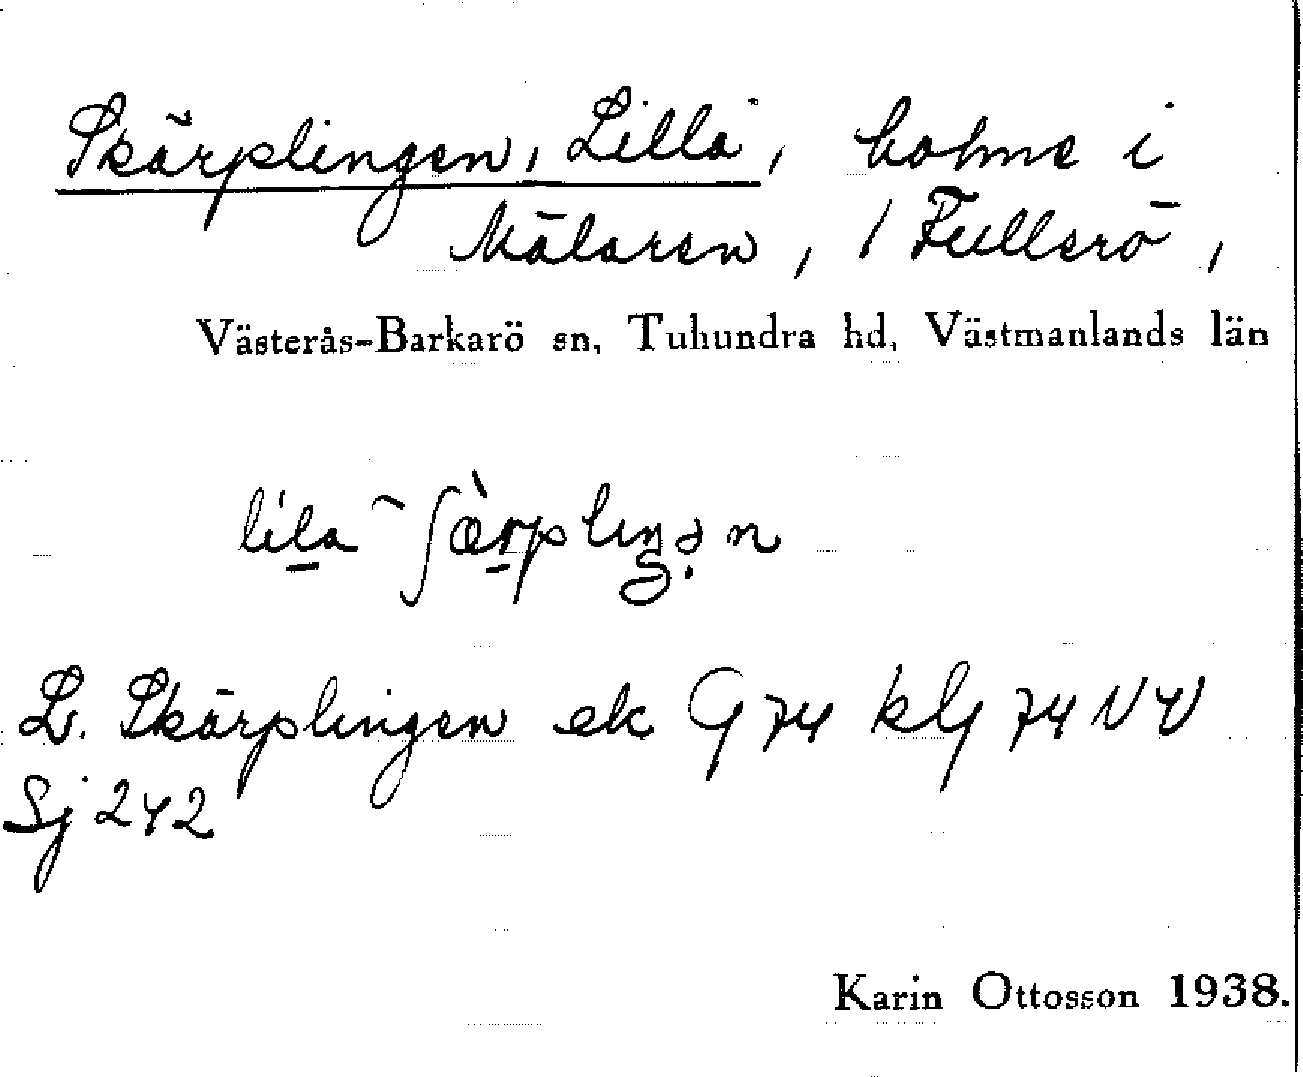 Skärplingen, Lilla, holme i
Mälaren, / Fullerö,
Västerås-Barkarö sn, Tuhundra hd, Västmanlands län
lila ʃæ̀rplıŋən
L. Skärplingen ek G 74 kG 74 NV
Sj 242
Karin Ottosson 1938.